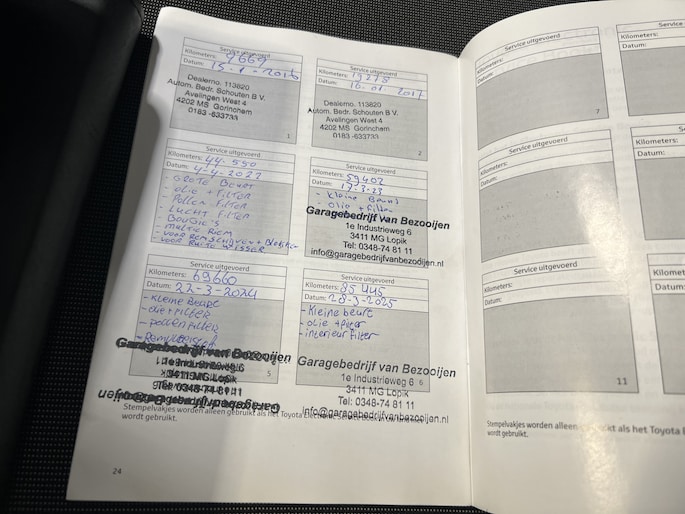 Service uitgevoerd
Kilometers: 9669
Datum: 15-1-2016
Dealerno. 113820
Autom. Bedr. Schouten B.V.
Avelingen West 4
4202 MS Gorinchem
0183-633733
1
Service uitgevoerd
Kilometers: 19278
Datum: 16-01-2017
Dealerno. 113820
Autom. Bedr. Schouten B.V.
Avelingen West 4
4202 MS Gorinchem
0183-633733
2
Service uitgevoerd
Kilometers: 44-550
Datum: 4-4-2022
- GROTE BEURT
- olie + FILTER
- Pollen FILTER
- LUCHT FILTER
- BOUGIE'S
- multie RIEM
- VOOR REMSCHIJVEN + Blokken
- VOOR RUITE WISSER
Service uitgevoerd
Kilometers: 59402
Datum: 17-3-23
- kleine Beurt
- olie + filter
Garagebedrijf van Bezooijen
1e Industrieweg 6
3411 MG Lopik
Tel: 0348-74 81 11
info@garagebedrijfvanbezooijen.nl
Service uitgevoerd
Kilometers: 69660
Datum: 22-3-2024
- Kleine Beurt
- olie + FILTER
- pollenfilter
Garagebedrijf van Bezooijen
1e Industrieweg 6
3411 MG Lopik
Tel: 0348-74 81 11
5
Service uitgevoerd
Kilometers: 85445
Datum: 28-3-2025
- Kleine beurt
- olie + filter
- interieur filter
Garagebedrijf van Bezooijen
1e Industrieweg 6
6
3411 MG Lopik
Tel: 0348-74 81 11
info@garagebedrijfvanbezooijen.nl
Stempelvakjes worden alleen gebruikt als het Toyota
wordt gebruikt.
24
Service uitgevoerd
Kilometers:
Datum:
7
Service uitgevoerd
Kilometers:
Datum:
Service uitgevoerd
Kilometers:
Datum:
11
Stempelvakjes worden alleen gebruikt als het Toyota
wordt gebruikt.
Service
Kilometers:
Datum:
Kilometers:
Datum:
Kilomet
Datum: